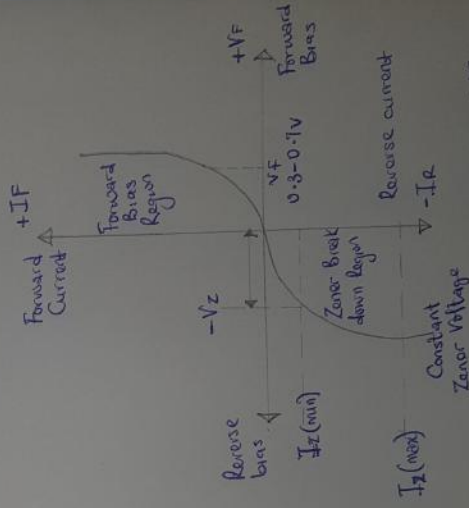 +IF
Forward
Current
Forward
Bias
Region
+VF
Forward
Bias
VF
0.3-0.7V
-VZ
Reverse
bias
IZ(min)
Zener Break
down Region
Reverse current
-IR
IZ(max)
Constant
Zener Voltage